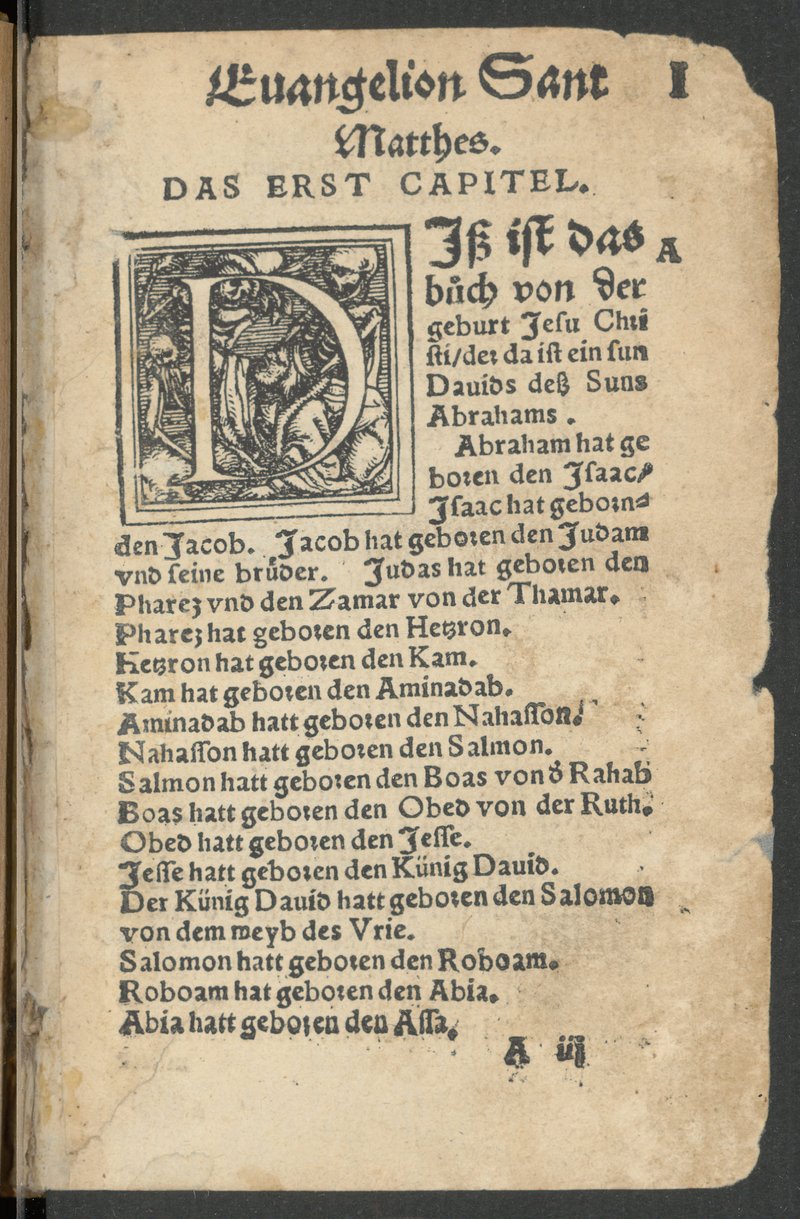 Euangelion Sant I
Matthes.
DAS ERST CAPITEL.
DJß ist das A
bůch von der
geburt Jesu Chri
sti/der da ist ein sun
Dauids deß Suns
Abrahams .
Abraham hat ge
boren den Jsaac/
Jsaac hat geborn
den Jacob. Jacob hat geboren den Judam
vnd seine brůder. Judas hat geboren den
Pharez vnd den Zamar von der Thamar.
Pharez hat geboren den Hetzron.
Hetzron hat geboren den Kam.
Kam hat geboren den Aminadab.
Aminadab hatt geboren den Nahasson.
Nahasson hatt geboren den Salmon.
Salmon hatt geboren den Boas von d̕ Rahab
Boas hatt geboren den Obed von der Ruth.
Obed hatt geboren den Jesse.
Jesse hatt geboren den Künig Dauid.
Der Künig Dauid hatt geboren den Salomon
von dem weyb des Vrie.
Salomon hatt geboren den Roboam.
Roboam hat geboren den Abia.
Abia hatt geboren den Assa.
A iij